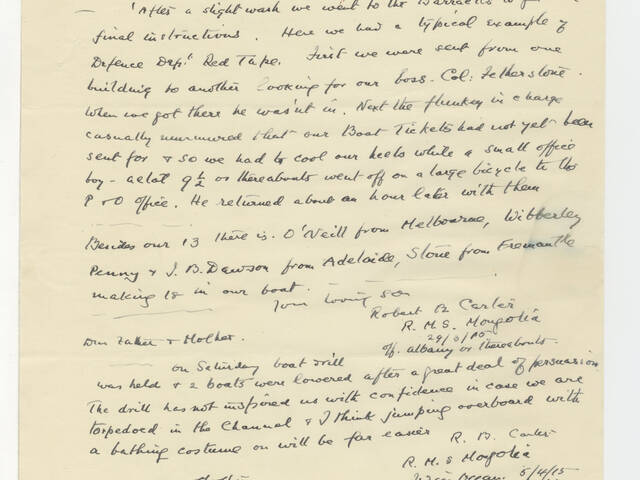 'After a slight wash we went to the Barracks to
final instructions. Here we had a typical example of
Defence Dept. Red Tape. First we were sent from one
building to another looking for our boss - Col: Fetherstone.
When we got there he wasn't in. Next the flunkey in charge
casually murmured that our Boat Tickets had not yet been
sent for & so we had to cool our heels while a small office
boy - aetat 9½ or thereabouts went off on a large bicycle to the
P & O office. He returned about an hour later with them
Besides our 13 there is O'Neill from Melbourne, Wibberley
Penny & J. B. Dawson from Adelaide, Stone from Fremantle
making 18 in our boat.
Your loving son
Robert B Carter
R. M. S. Mongolia
29/3/15
off. albany or thereabouts.
Dear Father & Mother.
on Saturday boat drill
was held & 2 boats were lowered after a great deal of persuasion
The drill has not inspired us with confidence in case we are
torpedoed in the Channel & I think jumping overboard with
a bathing costume on will be far easier
R. B. Carter
R. M. S Mongolia
5/4/15